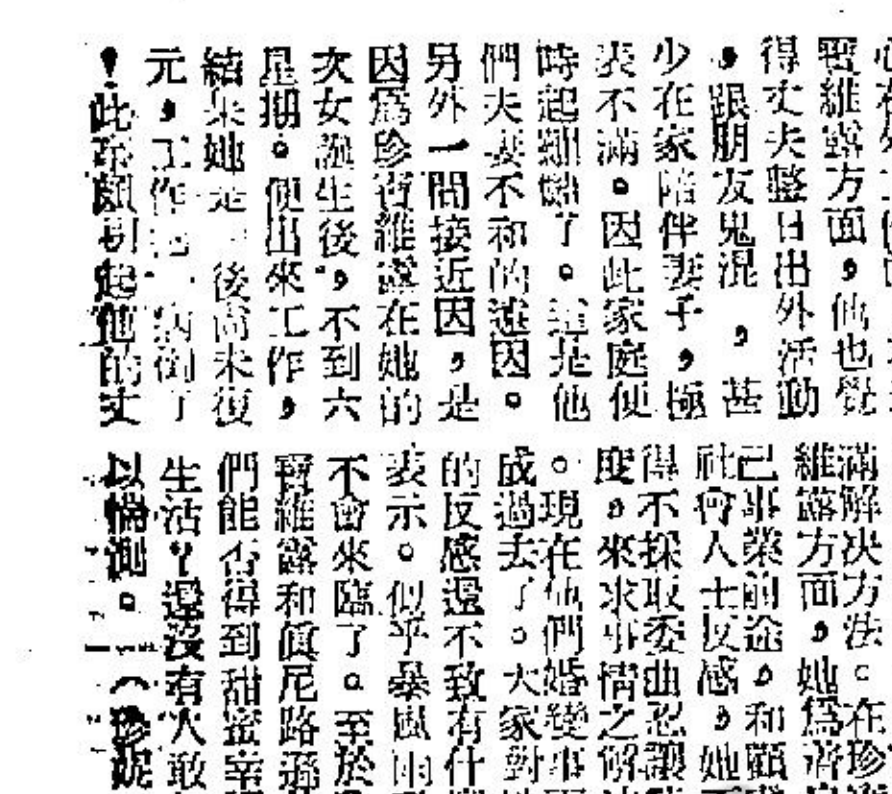 寶維露方面，他也覺
得丈夫整日出外活動
，跟朋友鬼混，甚
少在家陪伴妻子，極
表不滿。因此家庭便
時起了。這是他
們夫妻不和的遠因。
另外一間接近因，是
因爲珍寶維露在她的
次女誕生後，不到六
星期。便出來工作，
結果她是後尚未復
元，工作病倒了
！此事頗引起他的丈
滿解决方法。在珍
維露方面，她爲
己事業前途，和顧
社會人士反感，她
得不採取委曲忍讓
度，來求事情之解
。現在他們婚變事
成過去了。大家對
的反感還不致有什
表示。似乎暴風雨
不會來臨了。至於
寶維露和真尼路遜
們能否得到甜蜜幸
生活？還沒有人敢
以惴測。（珍妮